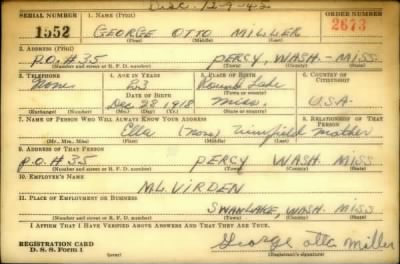 Disc. 12-9-42
SERIAL NUMBER 1. NAME (Print) ORDER NUMBER
1552 GEORGE OTTO MILLER 2673
(First) (Middle) (Last)
2. ADDRESS (Print)
P.O. #35 PERCY, WASH. - MISS.
(Number and street or R. F. D. number) (Town) (County) (State)
3. TELEPHONE 4. AGE IN YEARS 5. PLACE OF BIRTH 6. COUNTRY OF CITIZENSHIP
None Round Lake
DATE OF BIRTH (Town or county)
Dec 28 1918 Miss. U.S.A.
(Exchange) (Number) (Mo.) (Day) (Yr.) (State or country)
7. NAME OF PERSON WHO WILL ALWAYS KNOW YOUR ADDRESS 8. RELATIONSHIP OF THAT PERSON
Ella (none) Mother
(Mr., Mrs., Miss) (First) (Middle) (Last)
9. ADDRESS OF THAT PERSON
P.O. #35 PERCY WASH. MISS
(Number and street or R. F. D. number) (Town) (County) (State)
10. EMPLOYER'S NAME
M.L. VIRDEN
11. PLACE OF EMPLOYMENT OR BUSINESS
SWAN LAKE, WASH. MISS
(Number and street or R. F. D. number) (Town) (County) (State)
I AFFIRM THAT I HAVE VERIFIED ABOVE ANSWERS AND THAT THEY ARE TRUE.
REGISTRATION CARD
D. S. S. Form 1 George otto Miller
(Registrant's signature)